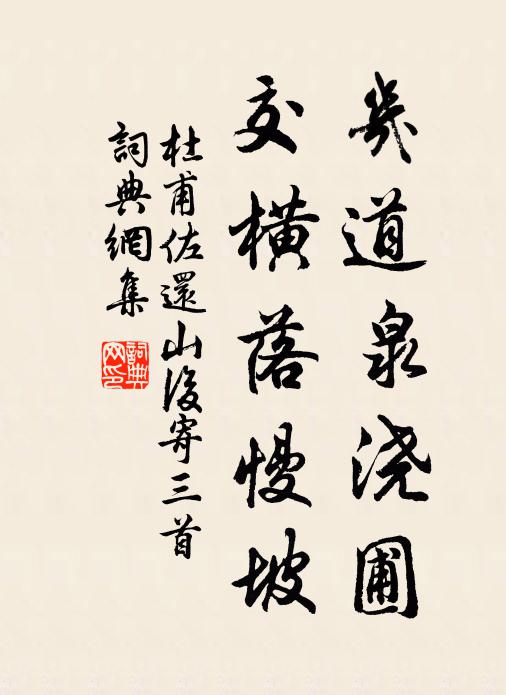 幾道泉浇圃
交横落慢坡
杜甫佐還山後寄三首
詞典網集
詞典
网印